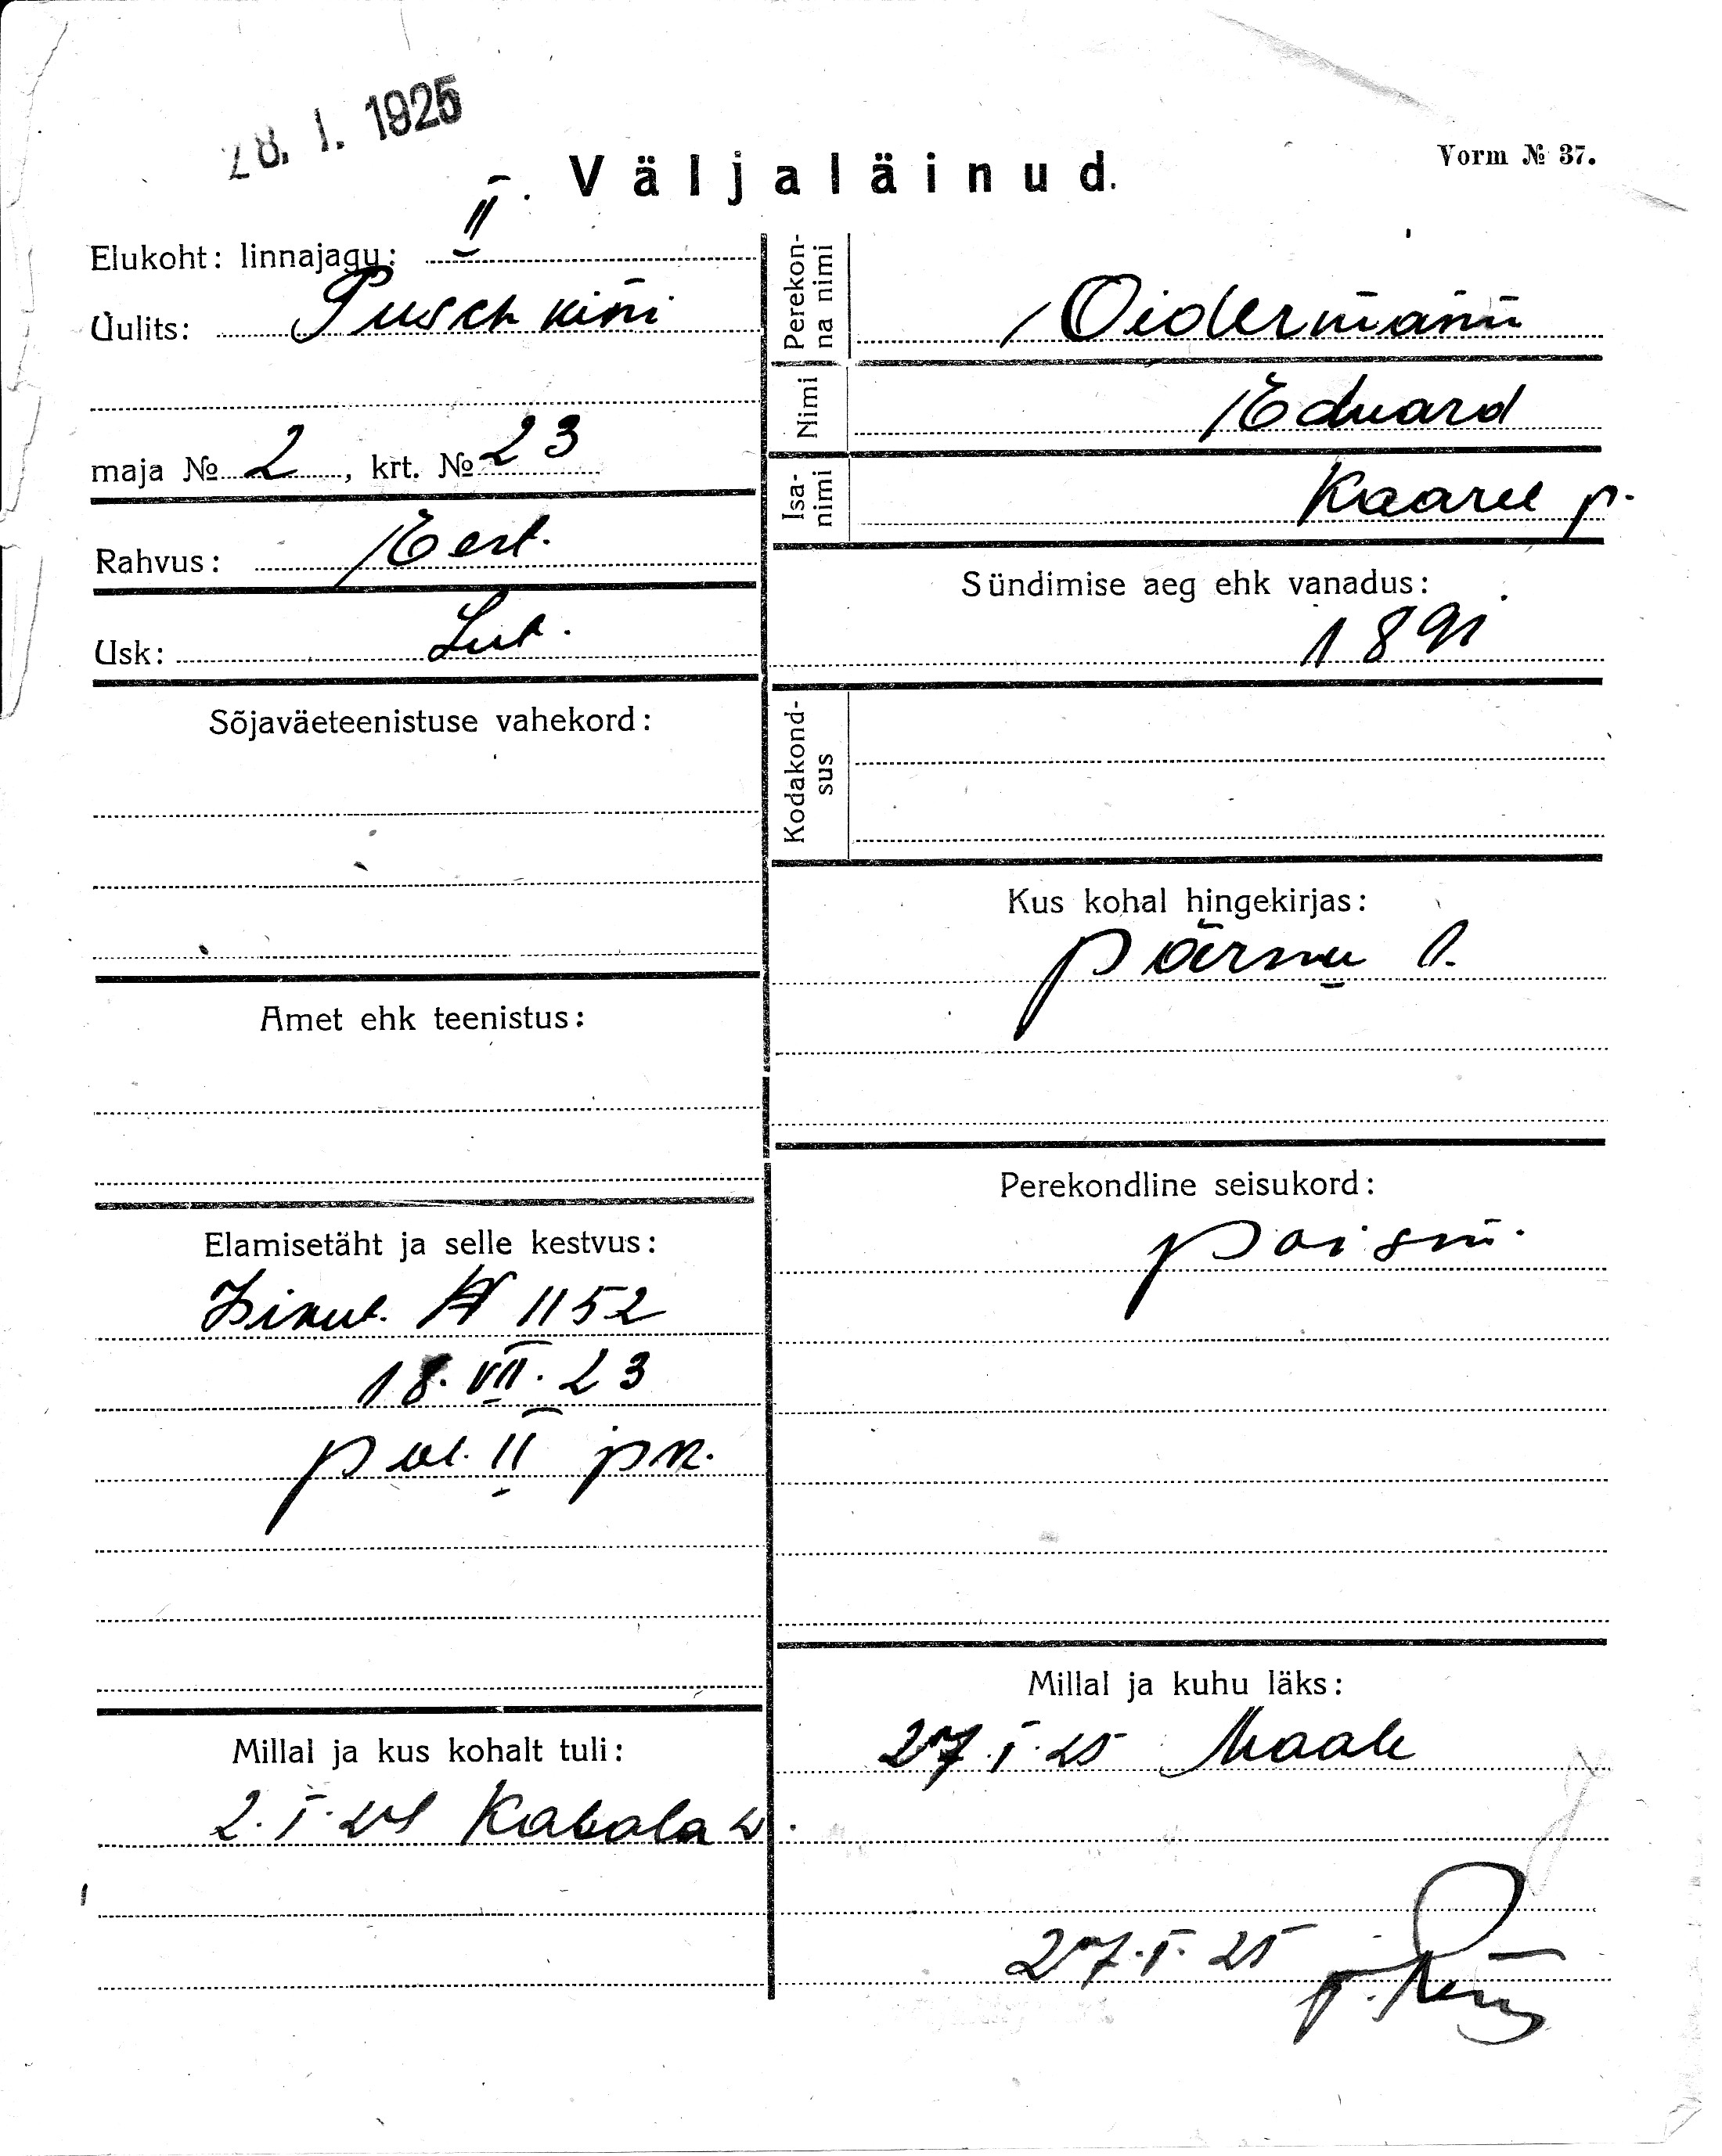 28. I. 1925
Väljaläinud.
Vorm № 37.
Elukoht: linnajagu: II
Uulits: Puschkini
maja № 2, krt. № 23
Rahvus: Eest.
Usk: Lut.
Sõjaväeteenistuse vahekord:
Amet ehk teenistus:
Elamisetäht ja selle kestvus:
Isikut. № 1152
18. VII. 23
pol. II jsk.
Millal ja kus kohalt tuli:
2. I. 24 Kabala w.
Perekon-
na nimi
Oidermann
Nimi Eduard
Isa-
nimi
Kaarel p.
Sündimise aeg ehk vanadus:
1891
Kodakond-
sus
Kus kohal hingekirjas:
Pärnu l.
Perekondline seisukord:
poism.
Millal ja kuhu läks:
27. I. 25 Maale
27. I. 25